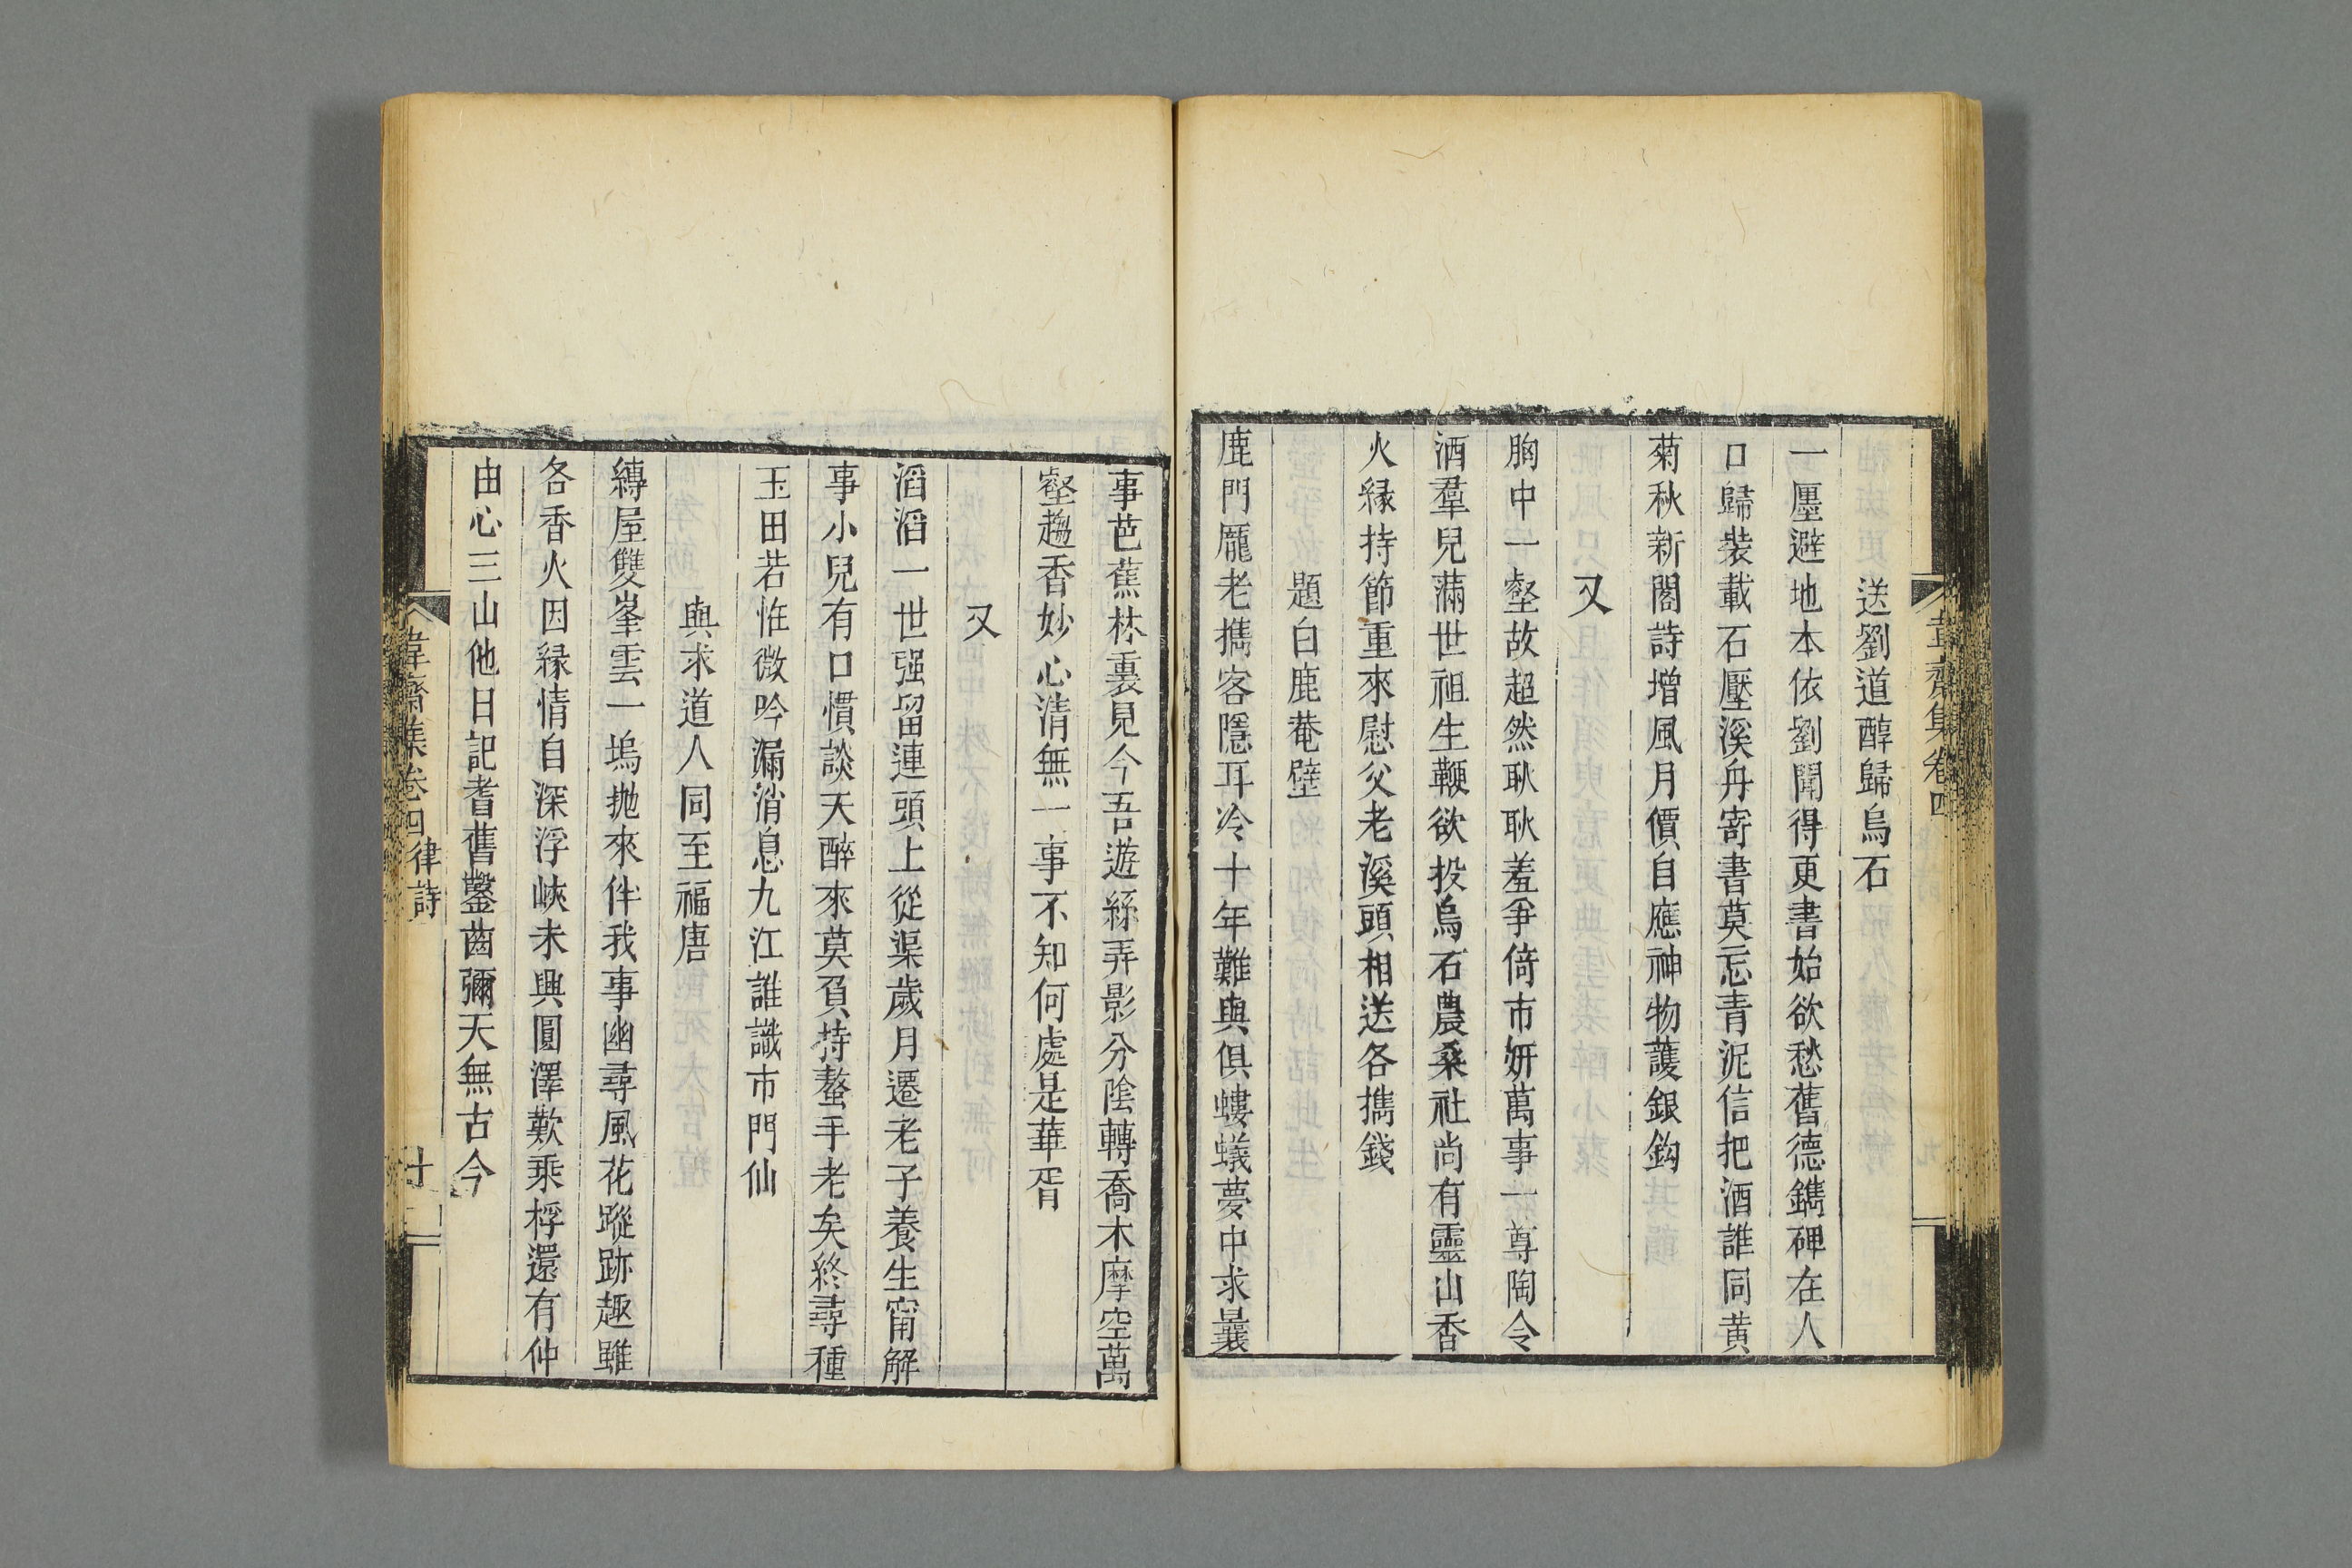 韋齋集卷四
送劉道醇歸烏石
一廛避地本依劉聞得更書始欲愁舊德鐫碑在人
口歸裝載石壓溪舟寄書莫忘青泥信把酒誰同黄
菊秋新閣詩增風月價自應神物護銀鈎
又
胸中一壑故超然耿耿羞爭倚市妍萬事一尊陶令
酒羣兒滿世祖生鞭欲投烏石農桑社尚有靈山香
火縁持節重來慰父老溪頭相送各擕錢
題白鹿菴壁
鹿門龎老擕客隱耳冷十年難與俱螻蟻夢中求曩
事芭蕉林裏見今吾遊絲弄影分陰轉喬木摩空萬
壑趨香妙心清無一事不知何處是華胥
又
滔滔一世强留連頭上從渠歲月遷老子養生甯解
事小兒有口慣談天醉來莫負持螯手老矣終尋種
玉田若怪微吟漏消息九江誰識市門仙
與求道人同至福唐
縳屋雙峯雲一塢抛來伴我事幽尋風花蹤跡趣雖
各香火因縁情自深浮峽未興圓澤歎乘桴還有仲
由心三山他日記耆舊鑿齒彌天無古今
韋齋集卷四 律詩
十